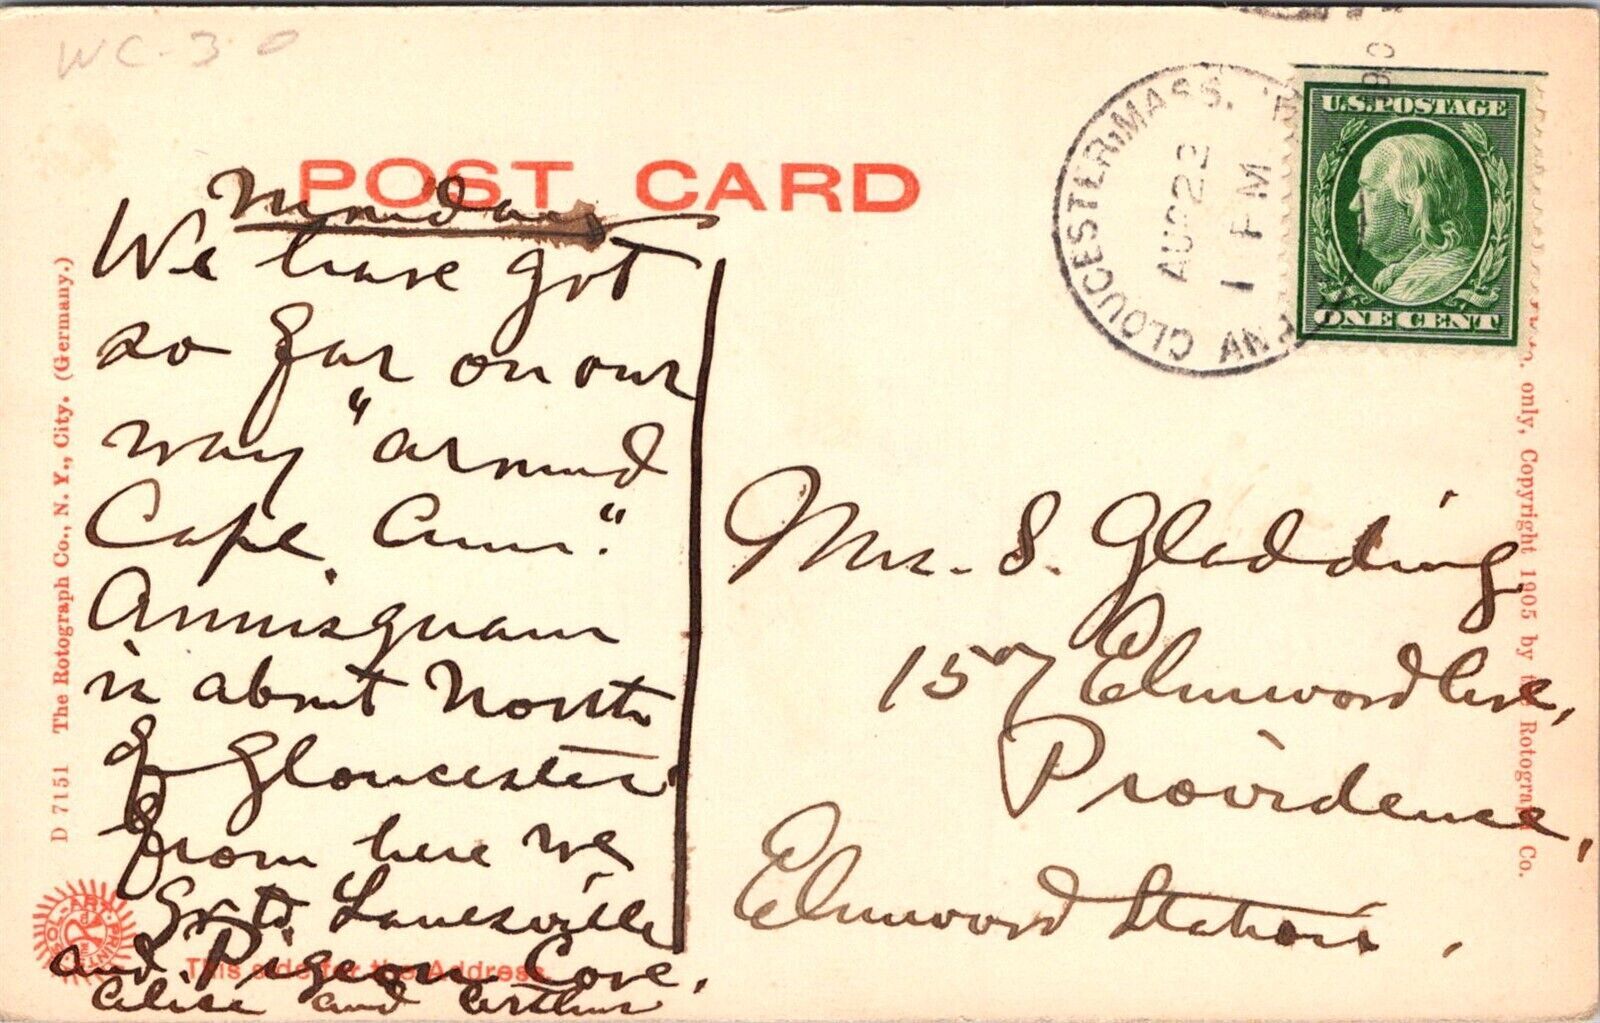 WC-30
POST CARD
Monday
We have got
so far on our
way "around
Cape Ann."
Annisquam
is about North
of Gloucester
from here we
go to Lanesville
and Pigeon Cove.
Alice and Arthur
This side for the Address.
D 7151 The Rotograph Co., N. Y., City. (Germany.)
SOL-ART PRINTS
GLOUCESTER, MASS.
AUG 22
1 PM
U.S. POSTAGE
ONE CENT
Mrs. S. Gladding
157 Elmwood Ave,
Providence,
Elmwood Station.
only, Copyright 1905 by the Rotograph Co.